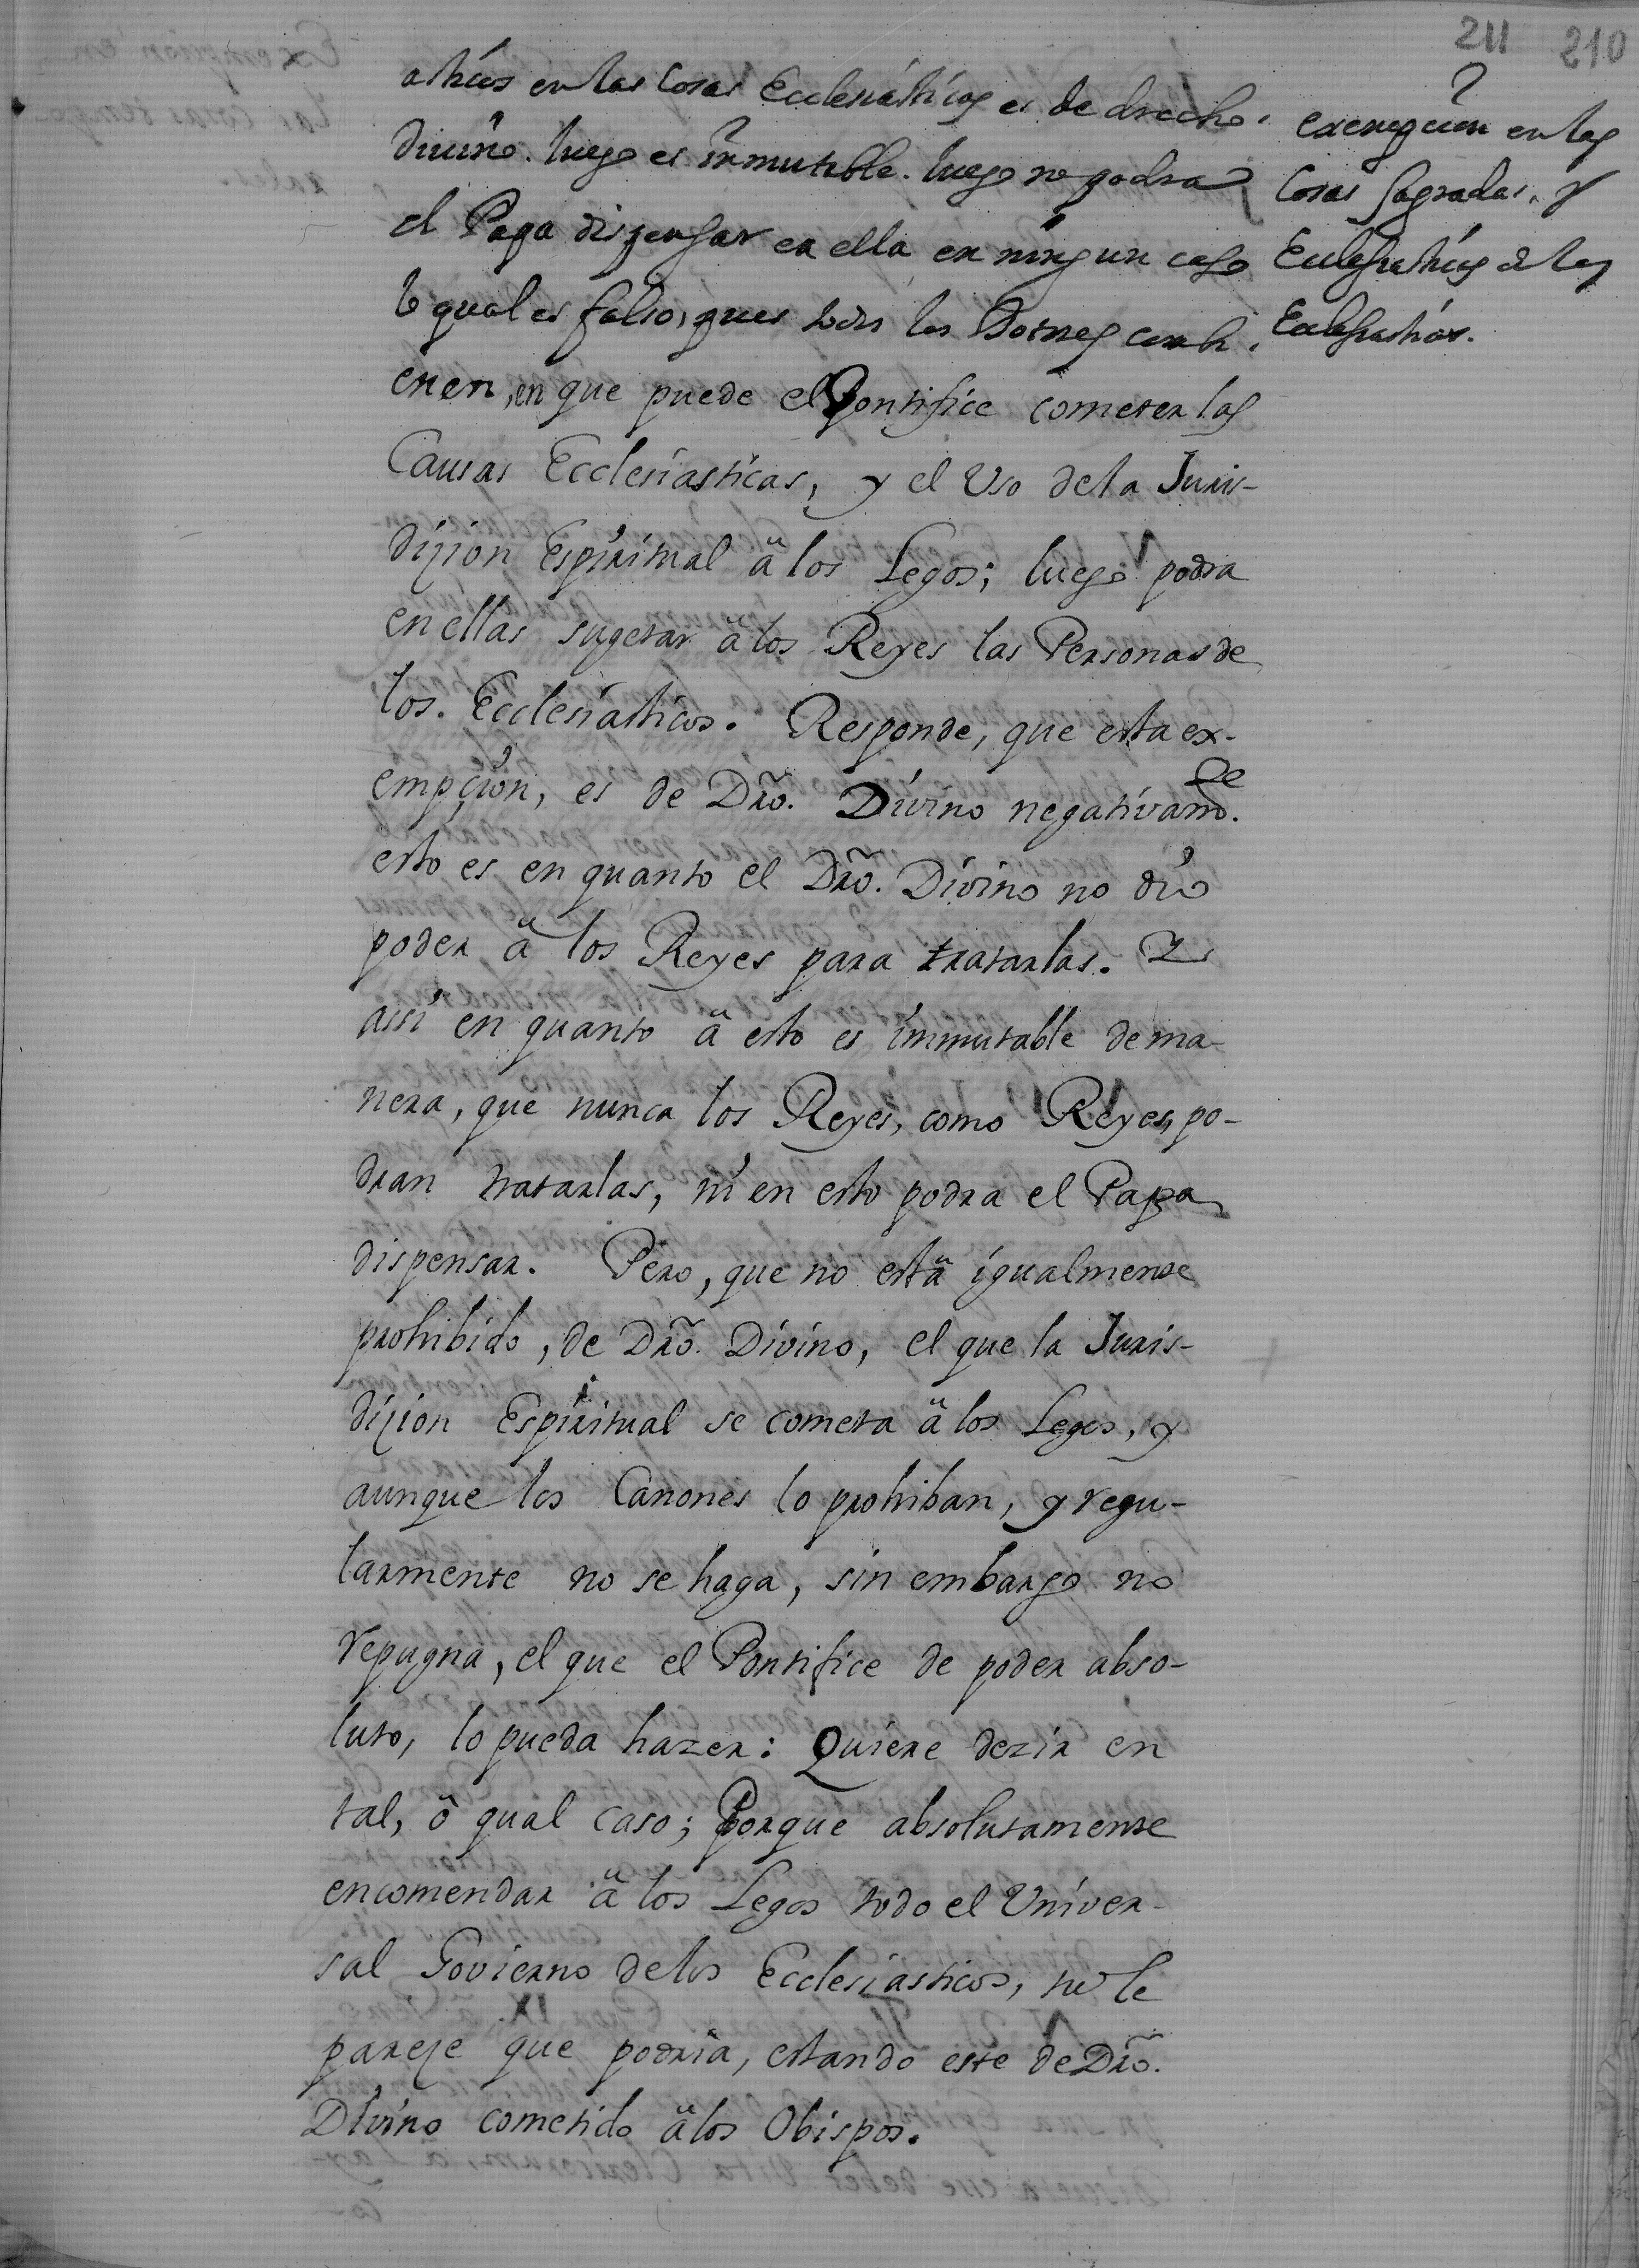 211 210
asticos en las Cosas Ecclesiásticas es de drecho
Divino. luego es inmutable. luego no podra
el Papa dispensar en ella en ningun caso
lo qual es falso, pues todos los Dotores convi-
enen, en que puede el Pontifice cometer las
Causas Ecclesiasticas, y el Uso dela Juris-
diçion Espiritual â los Legos; luego podra
en ellas sugetar â los Reyes las Personas de
los Ecclesiasticos. Responde, que esta ex-
empçion, es de Dro. Divino negativamte.
esto es en quanto el Dro. Divino no dio
poder â los Reyes para tratarlas. Y
assi en quanto â esto es immutable de ma-
nera, que nunca los Reyes, como Reyes, po-
dran tratarlas, ni en esto podra el Papa
dispensar. Pero, que no estâ igualmente
prohibido, de Dro. Divino, el que la Juris-
diçion Espiritual se cometa â los Legos, y
aunque los Canones lo prohiban, y regu-
larmente no se haga, sin embargo no
repugna, el que el Pontifice de poder abso-
luto, lo pueda hazer: Quiere dezir en
tal, ô qual caso; Porque absolutamente
encomendar â los Legos todo el Univer-
sal Govierno delos Ecclesiasticos, no le
pareçe que podria, estando este de Dro.
Divino cometido â los Obispos.
exempcion en las
Cosas Sagradas, y
Eccleshasticas de los
Ecclesiasticos.